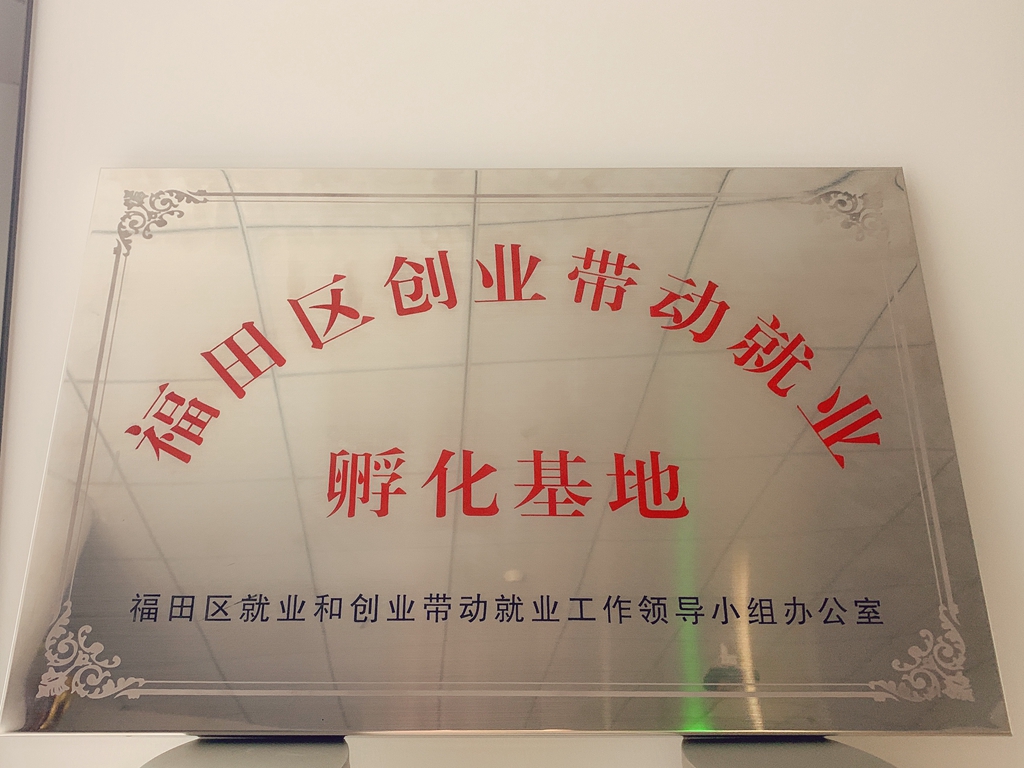 福田区创业带动就业
孵化基地
福田区就业和创业带动就业工作领导小组办公室